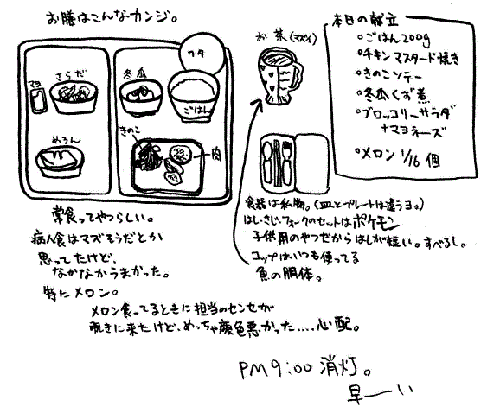 お膳はこんなカンジ。
フタ
マヨ
さらだ
冬瓜
ごはん
めろん
きのこ
肉
お茶(マズイ)
本日の献立
○ごはん200g
○チキンマスタード焼き
○きのこソテー
○冬瓜くず煮
○ブロッコリーサラダ
+マヨネーズ
○メロン1/16個
食器は私物。(皿とプレートは違うよ。)
はし・さじ・フォークのセットはポケモン
子供用のやつだからはしが短い。すべるし。
コップはいつも使ってる
魚の胴体。
常食ってやつらしい。
病人食はマズそうだとか
思ってたけど、
なかなかうまかった。
特にメロン。
メロン食ってるときに担当のセンセが
覗きに来たけど、めっちゃ顔色悪かった....心配。
PM9:00 消灯。
早ーい